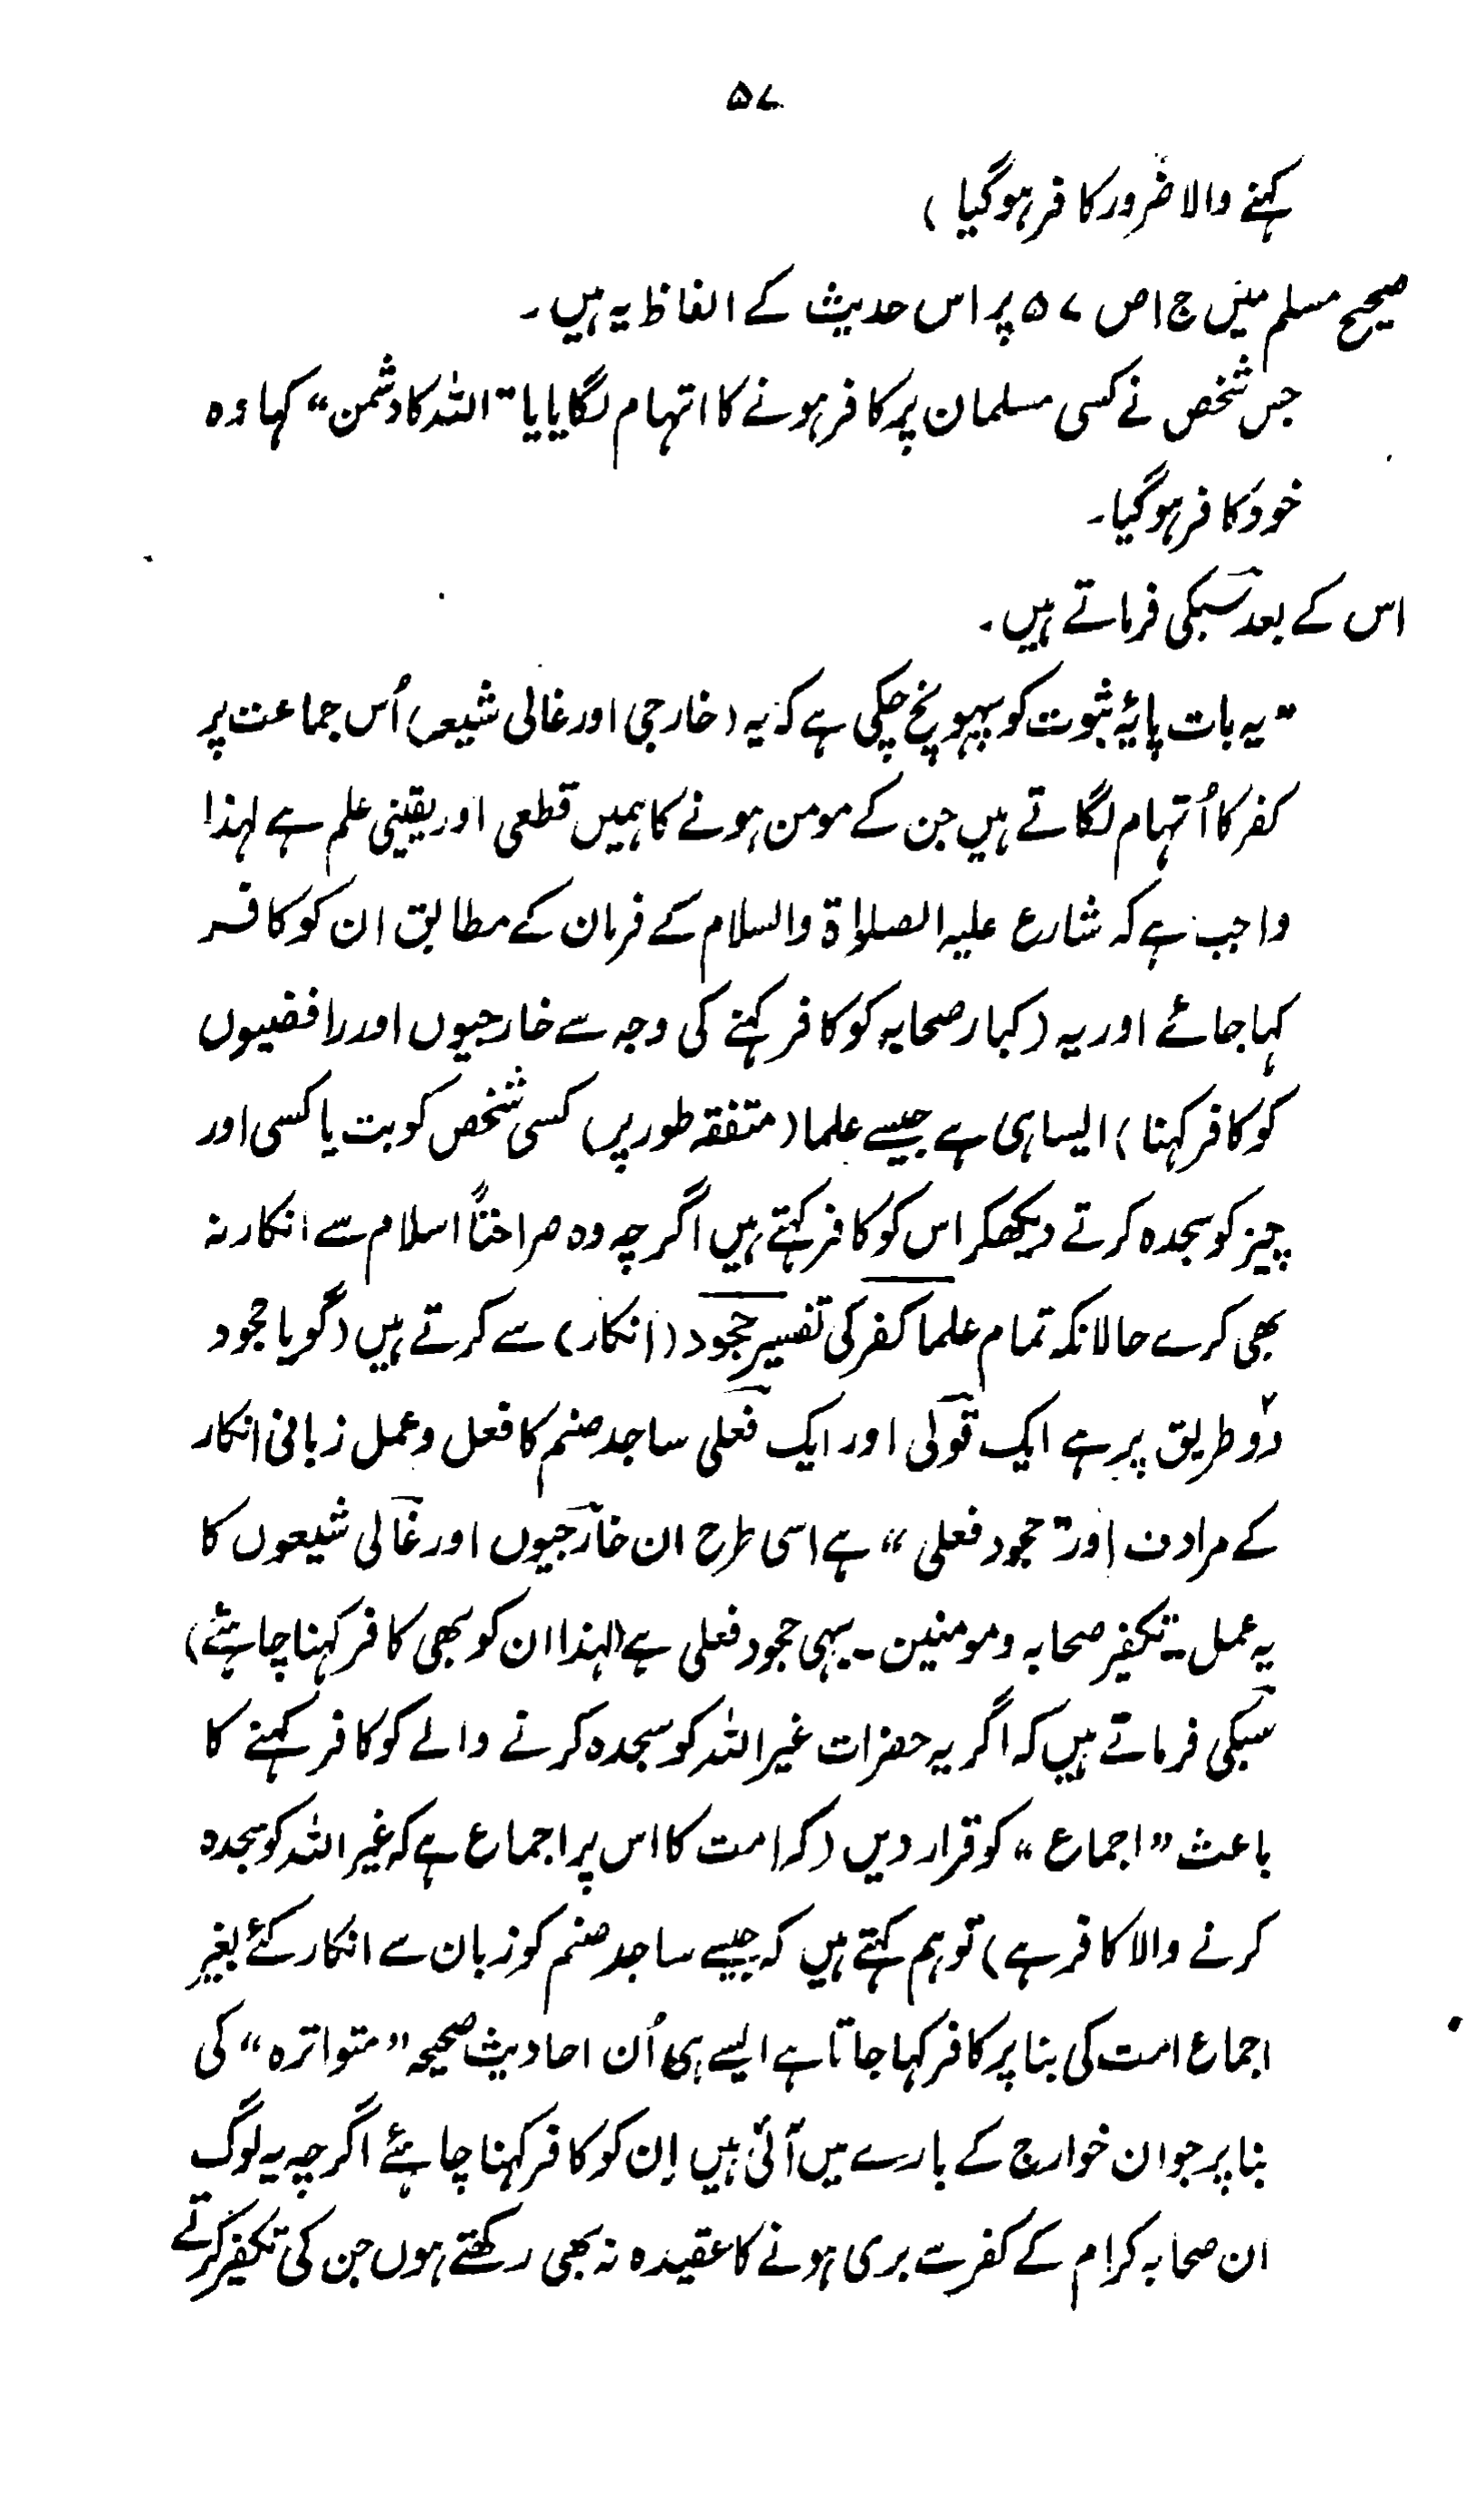 ۵۷
کہنے والا ضرور کافر ہوگیا)
صحیح مسلم میں ج ۱ ص ۵۷ پر اس حدیث کے الفاظ یہ ہیں۔
جس شخص نے کسی مسلمان پر کافر ہونے کا اتہام لگایا یا "اللہ کا دشمن" کہا وہ
خود کافر ہوگیا۔
اس کے بعد سبکی فرماتے ہیں۔
"یہ بات پایۂ ثبوت کو پہونچ چکی ہے کہ یہ (خارجی اور غالی شیعہ) اُس جماعت پر
کفر کا اُتہام لگاتے ہیں جن کے مومن ہونے کا ہمیں قطعی اور یقینی علم ہے لہٰذا
واجب ہے کہ شارع علیہ الصلواۃ والسلام کے فرمان کے مطابق ان کو کافر
کہا جائے اور یہ (کبار صحابہ کو کافر کہنے کی وجہ سے خارجیوں اور رافضیوں
کو کافر کہنا) ایسا ہی ہے جیسے علما (متفقہ طور پر) کسی شخص کو بت یا کسی اور
چیز کو سجدہ کرتے دیکھکر اس کو کافر کہتے ہیں اگرچہ وہ صراحتاً اسلام سے انکار نہ
بھی کرے حالانکہ تمام علما کفر کی تفسیر جحود (انکار) سے کرتے ہیں (گویا جحود
دو۲ طریق پر ہے ایک قولی اور ایک فعلی ساجد صنم کا فعل و عمل زبانی انکار
کے مرادف اور "جحود فعلی" ہے اسی طرح ان خارجیوں اور غالی شیعوں کا
یہ عمل۔ تکفیر صحابہ و مومنین۔ یہی جحود فعلی ہے (لہٰذا ان کو بھی کافر کہنا چاہئے)
سبکی فرماتے ہیں کہ اگر یہ حضرات غیر اللہ کو سجدہ کرنے والے کو کافر کہنے کا
باعث "اجماع" کو قرار دیں (کہ امت کا اس پر اجماع ہے کہ غیر اللہ کو سجدہ
کرنے والا کافر ہے) تو ہم کہتے ہیں کہ جیسے ساجد صنم کو زبان سے انکار کئے بغیر
اجماع امت کی بنا پر کافر کہا جاتا ہے ایسے ہی اُن احادیث صحیحہ "متواترہ" کی
بنا پر جو ان خوارج کے بارے میں آئی ہیں اِن کو کافر کہنا چاہئے اگرچہ یہ لوگ
ان صحابہ کرام کے کفر سے بری ہونے کا عقیدہ نہ بھی رکھتے ہوں جن کی تکفیر کرتے